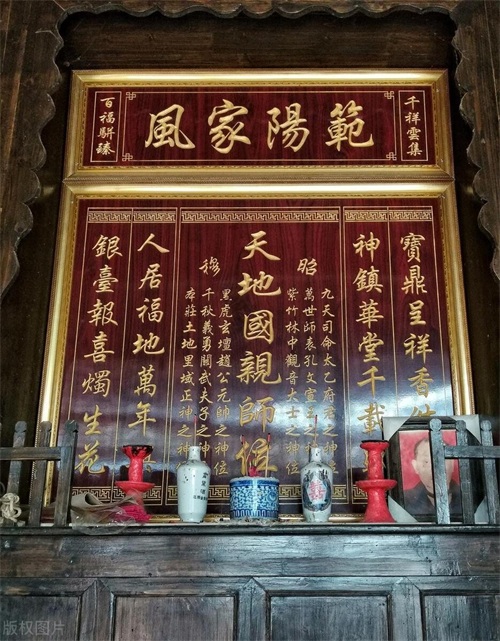 範陽家風
千祥雲集
百福駢臻
寶鼎呈祥香
神鎮華堂千載
昭
九天司命太乙府君之神
萬世師表孔文宣王之神
紫竹林中觀音大士之神位
天地國親師位
穆
黑虎玄壇趙公元帥之神位
千秋義勇關武夫子之神
本莊土地里域正神之神位
人居福地萬年
銀臺報喜燭生花
版权图片